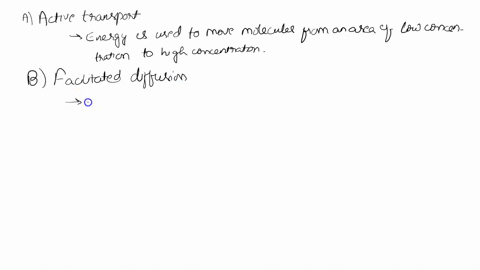 A) Active transport
→ Energy is used to move molecules from an area of low concen
tration to high concentration.
B) Facilitated diffusion
→